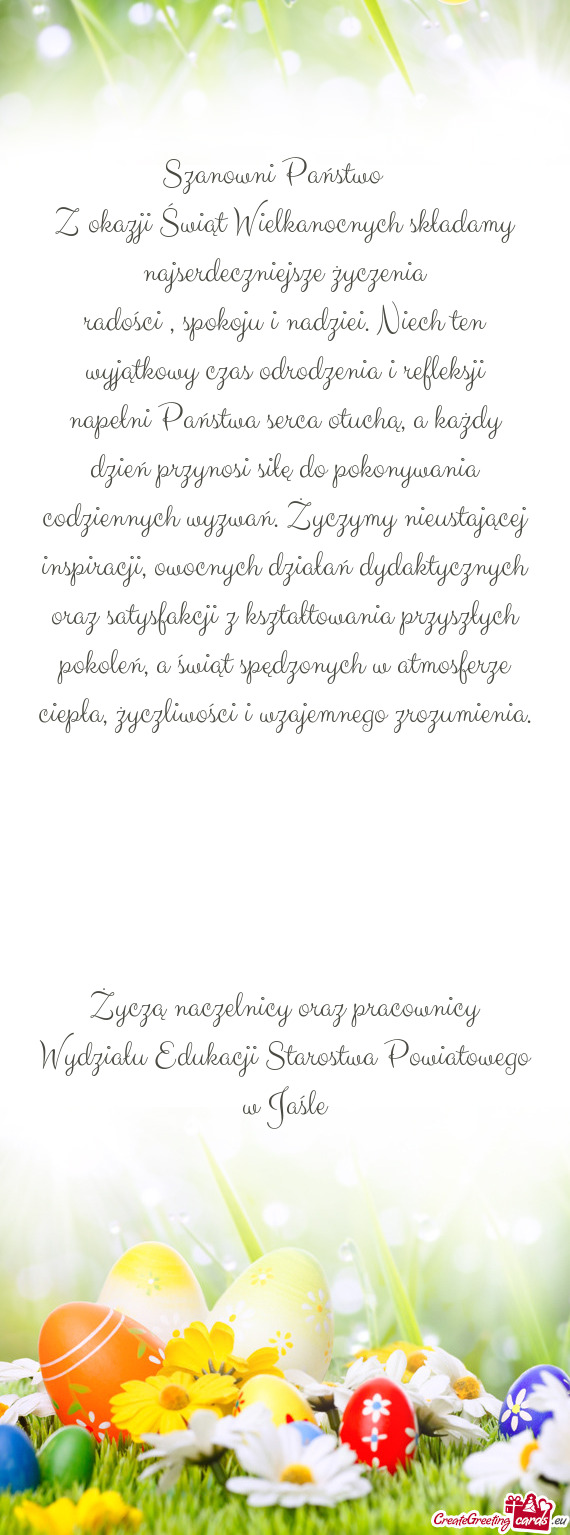 Szanowni Państwo
Z okazji Świąt Wielkanocnych składamy
najserdeczniejsze życzenia
radości , spokoju i nadziei. Niech ten
wyjątkowy czas odrodzenia i refleksji
napełni Państwa serca otuchą, a każdy
dzień przynosi siłę do pokonywania
codziennych wyzwań. Życzymy nieustającej
inspiracji, owocnych działań dydaktycznych
oraz satysfakcji z kształtowania przyszłych
pokoleń, a świąt spędzonych w atmosferze
ciepła, życzliwości i wzajemnego zrozumienia.
Życzą naczelnicy oraz pracownicy
Wydziału Edukacji Starostwa Powiatowego
w Jaśle
CreateGreetingcards.eu